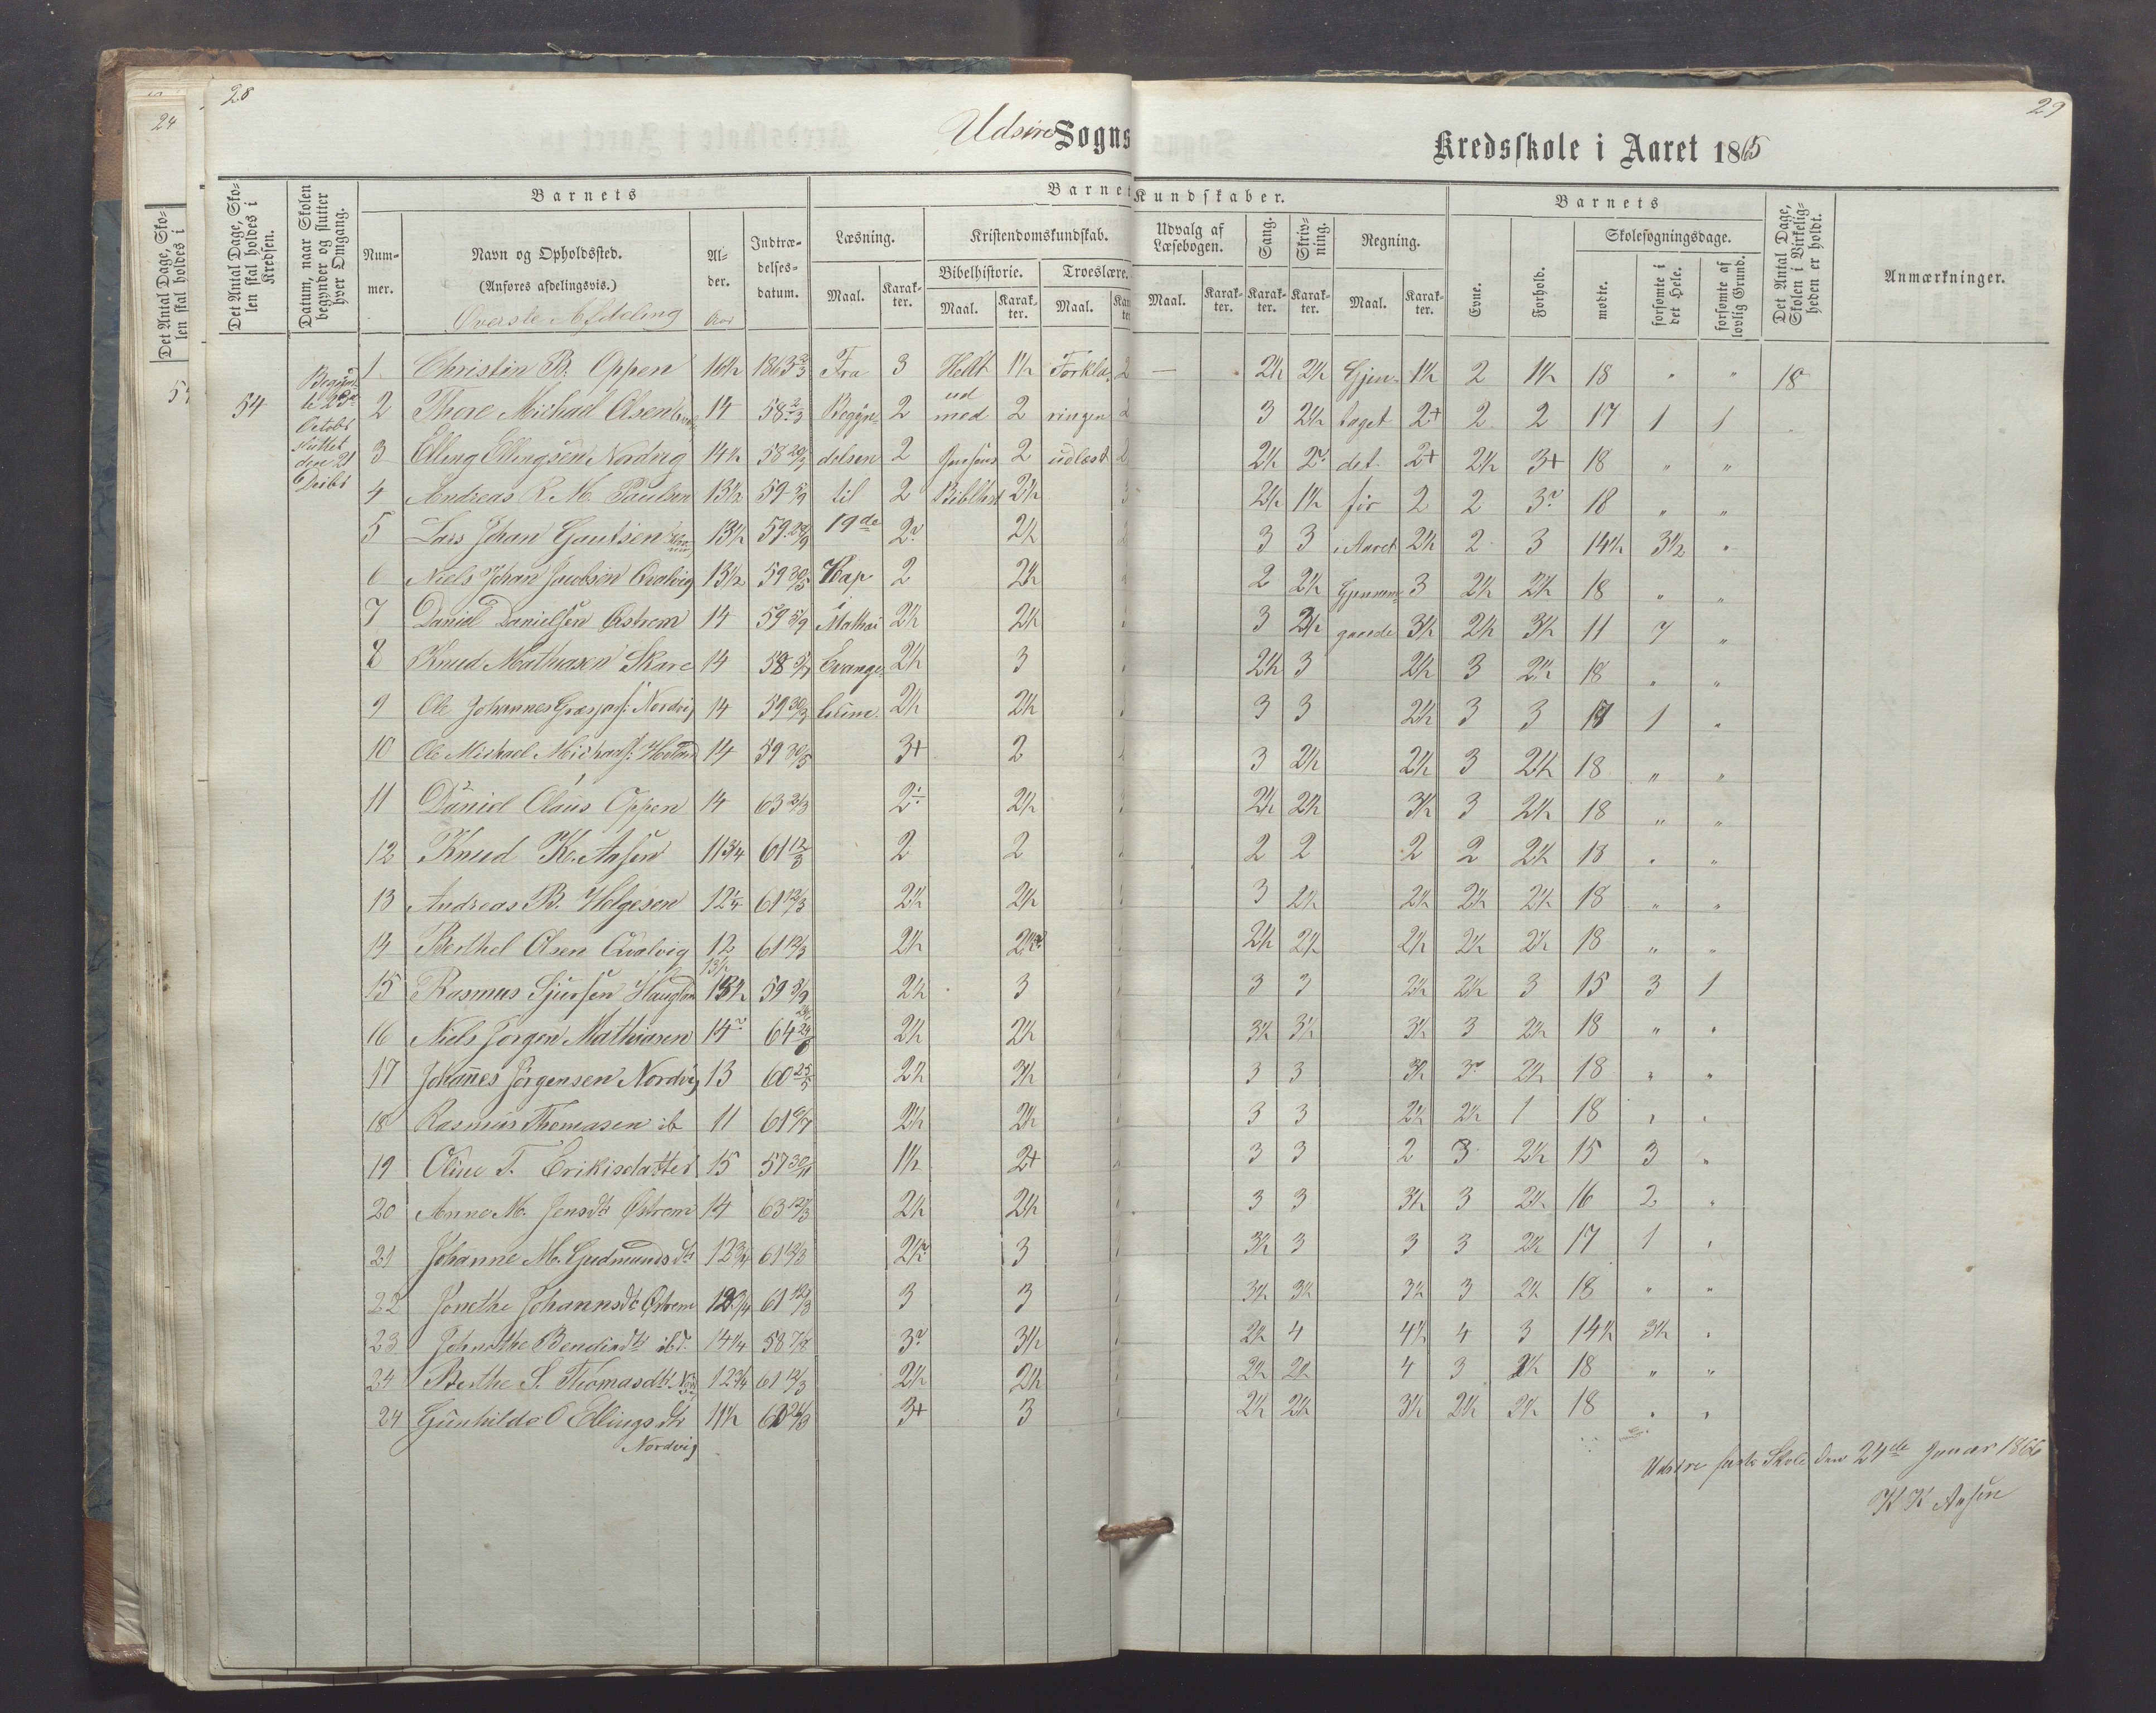 28
29
24
Udsire Sogns
Kredsskole i Aaret 1865
Det Antal Dage, Skolen skal holdes i
Det Antal Dage, Skolen skal holdes i Kredsen.
Datum, naar Skolen begynder og slutter hver Omgang.
Barnets
Nummer.
Navn og Opholdssted.
(Anføres afdelingsvis.)
Øverste Afdeling
Alder.
Aar
Indtrædelsesdatum.
Barnets Kundskaber.
Læsning.
Maal. Karakter.
Kristendomskundskab.
Bibelhistorie. Troeslære.
Maal. Karakter. Maal.
Udvalg af Læsebogen.
Maal. Karakter.
Sang. Karakter.
Skrivning. Karakter.
Regning.
Maal. Karakter.
Barnets
Evne. Forhold.
Skolesøgningsdage.
mødte. forsømte i det Hele. forsømte af lovlig Grund.
Det Antal Dage, Skolen i Virkeligheden er holdt.
Anmærkninger.
54
Begynte 23de Octobr sluttet den 21 Decbr
1 Christin B. Oppen 16½ 1863 2/3 Fra 3 Heelt 1½ Forkla- 2 — 2½ 2½ Gjen- 1½ 2 1½ 18 " " 18
2 Thore Michael Olsen 14 58 2/3 Begyn- 2 ud med 2 ringen 2 3 2½ taget 2+ 2 2 17 1 1
3 Elling Ellingsen Nordvig 14½ 58 20/3 delsen 2 Jensens 2 udlæst 2 2½ 2 det 2+ 2½ 3+ 18 " "
4 Andreas R. M. Paulsen 13½ 59 5/9 til 2 Biblhist 2½ 3 2½ 1½ før 2 2 3 18 " "
5 Lars Johan Gautsen 13½ 59 19de 2 2½ 3 3 i Aaret 2½ 2 3 14½ 3½ "
6 Niels Johan Jacobsen Qvalvig 13½ 59 30/5 Kap 2 2½ 2 2½ Gjennem- 3 2½ 2½ 18 " "
7 Daniel Danielsen Østrem 14 59 5/9 i Mathai 2½ 2½ 3 3½ gaaede 3½ 2½ 3½ 11 7 "
8 Knud Mathiasen Skare 14 58 5/7 Evange- 2½ 3 2½ 3 2½ 3 2½ 18 " "
9 Ole Johannes Nordvig 14 59 30/3 lium. 2½ 2½ 3 3 2½ 3 3 17 1 "
10 Ole Michael Michaels: Hovland 14 59 30/5 3+ 2 3 2½ 2½ 3 2½ 18 " "
11 Daniel Olaus Oppen 14 63 2/3 2 2½ 2½ 2½ 3½ 3 2½ 18 " "
12 Knud K. Aasen 11 3/4 61 12/3 2 2 2 2 2 2 2½ 18 " "
13 Andreas B. Helgesen 12 1/4 61 12/3 2½ 2½ 3 2½ 2½ 2½ 2½ 18 " "
14 Berthel Olsen Qvalvig 12 61 12/3 2½ 2½ 2½ 2½ 2½ 2½ 2½ 18 " "
15 Rasmus Sjursen Haugland 13½ 59 5/9 2½ 3 3 3 2½ 2½ 3 15 3 1
16 Niels Jørgen Mathiasen 14 64 2½ 2½ 3½ 3½ 3½ 3 2½ 18 " "
17 Johannes Jørgensen Nordvig 13 60 25/5 2½ 3½ 3 3 3½ 3 2½ 18 " "
18 Rasmus Thomasen ib 11 61 2½ 2½ 3 3 2½ 2½ 1 18 " "
19 Oline T. Eriksdatter 15 57 30/11 1½ 2+ 3 3 2 3 2½ 15 3 "
20 Anne M. Jensdtr Østrem 14 63 12/3 2½ 2½ 3 3 3½ 3 2½ 16 2 "
21 Johanne M. Gudmundsdtr 12 3/4 61 12/3 2½ 3 3½ 3 3 3 2½ 17 1 "
22 Jonethe Johannsdtr Østrem 12 3/4 61 12/3 3 3 3½ 3½ 3½ 3 2½ 18 " "
23 Johnethe Bendixdtr ibd. 14 1/4 58 7/8 3 3½ 2½ 4 4½ 4 3 14½ 3½ "
24 Berthe S. Thomasdtr 12 3/4 61 12/3 2½ 2½ 2½ 2½ 4 3 2½ 18 " "
24 Gunhilde O Ellingsdtr 11½ 3+ 3 2½ 2½ 3½ 2½ 2½ 18 " "
Nordvig
Udsire faste Skole den 24de Januar 1866
K K Aasen